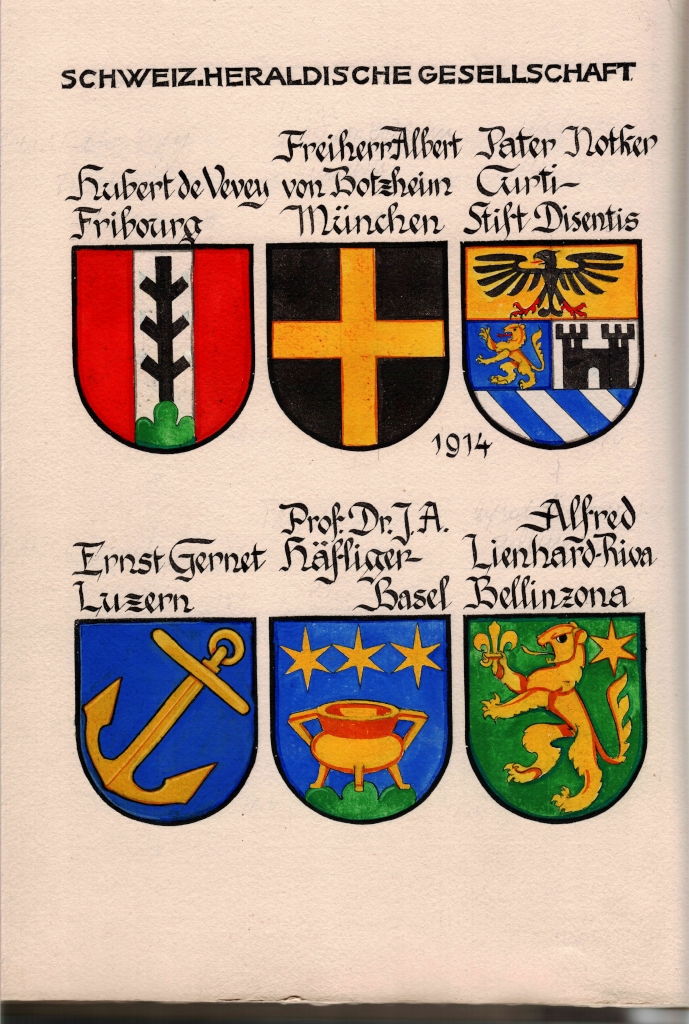 SCHWEIZ.HERALDISCHE GESELLSCHAFT
Hubert de Vevey
Fribourg
Freiherr Albert
von Botzheim
München
Pater Notker
Curti-
Stift Disentis
1914
Ernst Gernet
Luzern
Prof. Dr. J. A.
Häfliger-
Basel
Alfred
Lienhard-Riva
Bellinzona